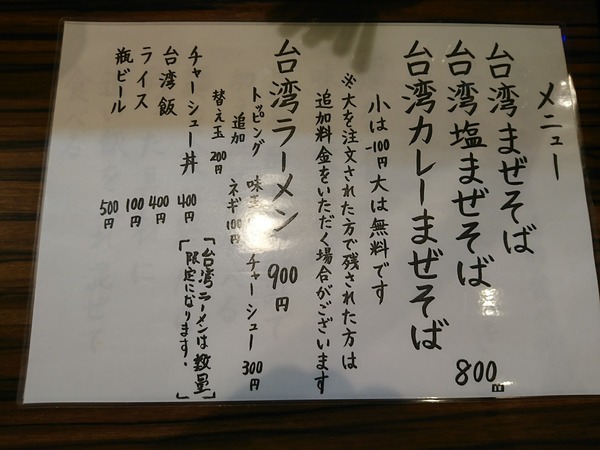 メニュー
台湾まぜそば
台湾塩まぜそば 800円
台湾カレーまぜそば
小は-100円 大は無料です
※大を注文された方で残された方は
追加料金をいただく場合がございます
台湾ラーメン 900円
トッピング 味玉 チャーシュー 300円
追加 ネギ 100円
替え玉 200円
チャーシュー丼 400円
台湾飯 400円
ライス 100円
瓶ビール 500円
「台湾ラーメンは数量
限定になります。」